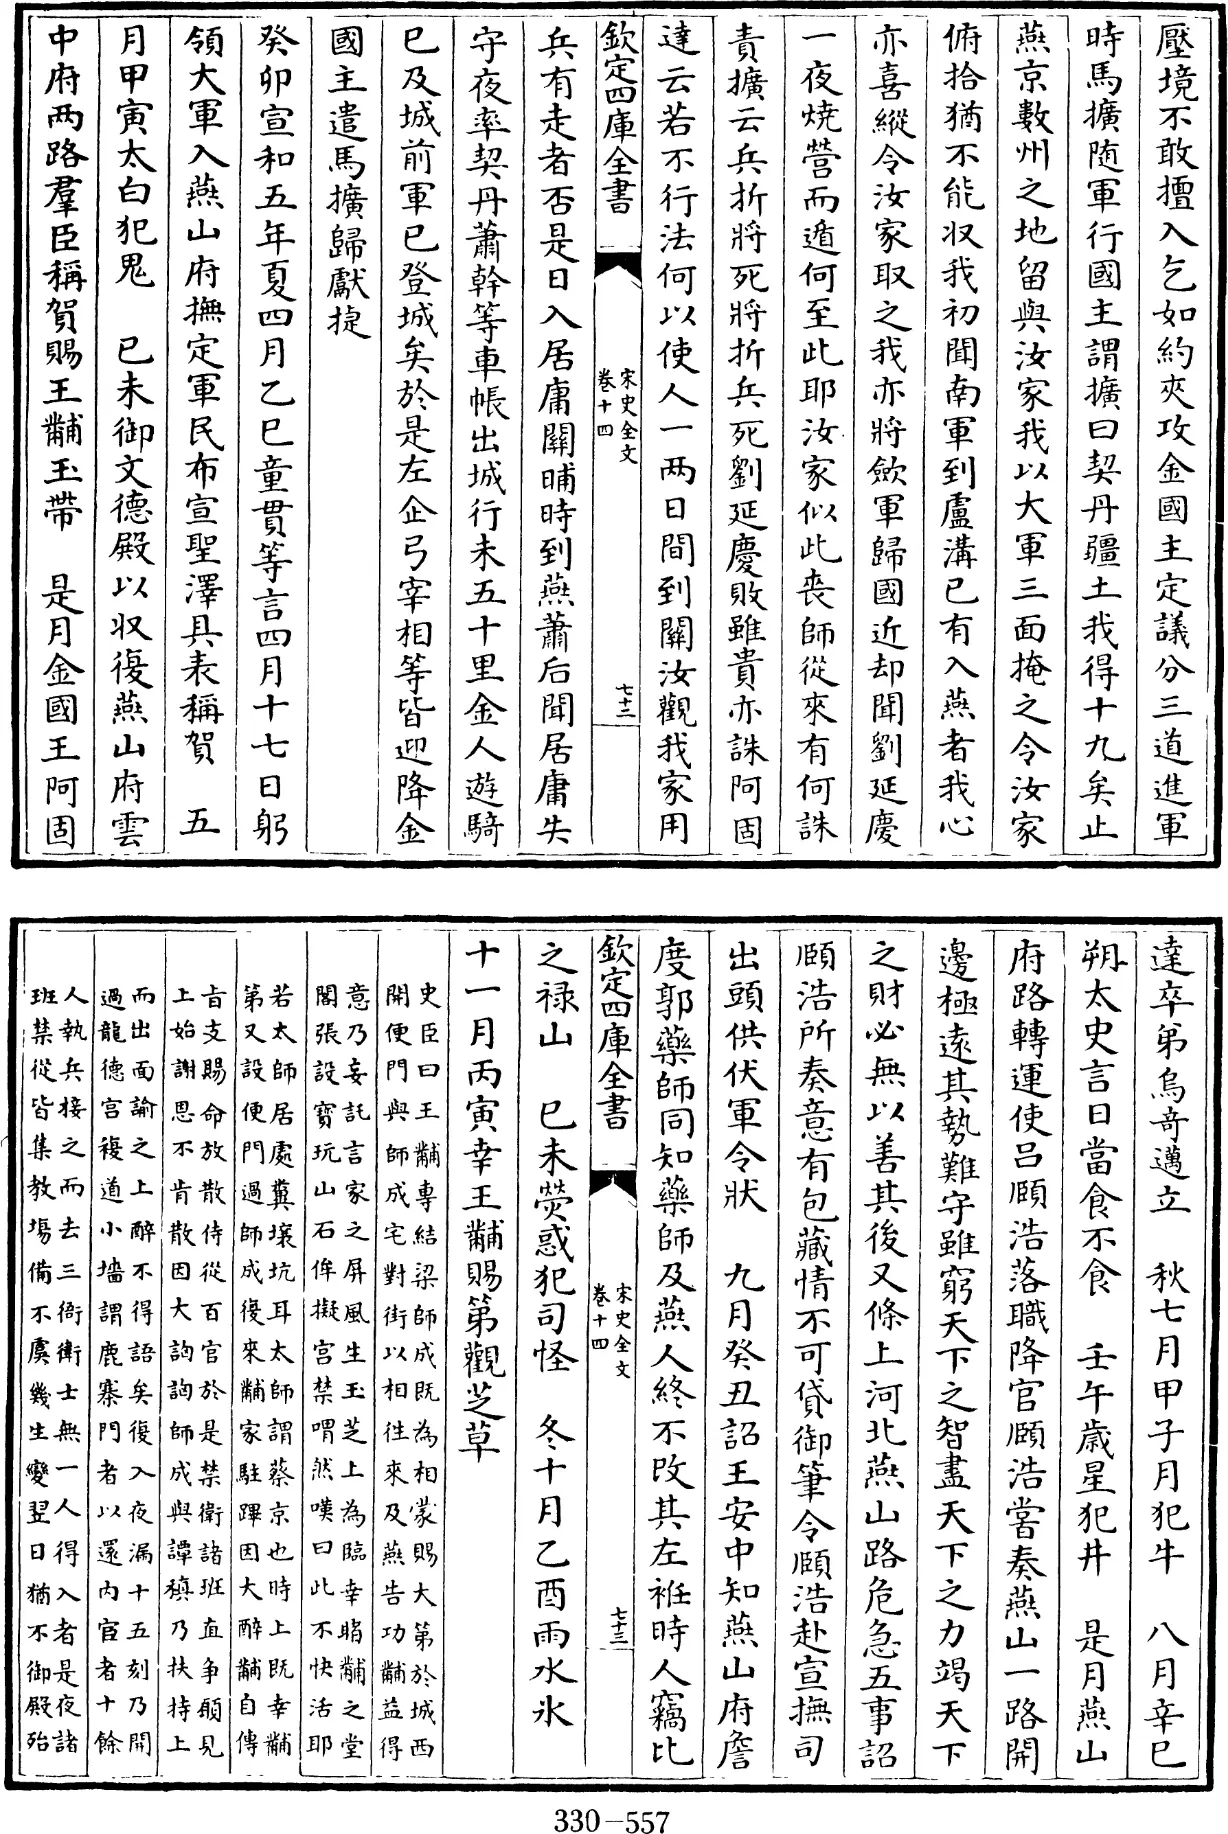 壓境不敢擅入乞如約夾攻金國主定議分三道進軍
時馬擴隨軍行國主謂擴曰契丹疆土我得十九矣止
燕京數州之地留與汝家我以大軍三面掩之令汝家
俯拾猶不能収我初聞南軍到盧溝已有入燕者我心
亦喜縱令汝家取之我亦將歛軍歸國近却聞劉延慶
一夜燒營而遁何至此耶汝家似此喪師從來有何誅
責擴云兵折將死將折兵死劉延慶敗雖貴亦誅阿固
達云若不行法何以使人一兩日間到關汝觀我家用
欽定四庫全書
宋史全文
卷十四
七十二
兵有走者否是日入居庸關晡時到燕蕭后聞居庸失
守夜率契丹蕭幹等車帳出城行未五十里金人遊騎
已及城前軍已登城矣於是左企弓宰相等皆迎降金
國主遣馬擴歸獻捷
癸卯宣和五年夏四月乙巳童貫等言四月十七日躬
領大軍入燕山府撫定軍民布宣聖澤具表稱賀 五
月甲寅太白犯鬼 已未御文德殿以収復燕山府雲
中府两路羣臣稱賀賜王黼玉帶 是月金國王阿固
達卒弟烏奇邁立 秋七月甲子月犯牛 八月辛巳
朔太史言日當食不食 壬午歲星犯井 是月燕山
府路轉運使呂頤浩落職降官頤浩嘗奏燕山一路開
邊極遠其勢難守雖窮天下之智盡天下之力竭天下
之財必無以善其後又條上河北燕山路危急五事詔
頤浩所奏意有包藏情不可貸御筆令頤浩赴宣撫司
出頭供伏軍令狀 九月癸丑詔王安中知燕山府詹
度郭藥師同知藥師及燕人終不改其左袵時人竊比
欽定四庫全書
宋史全文
卷十四
七十三
之禄山 已未熒惑犯司怪 冬十月乙酉雨水氷
十一月丙寅幸王黼賜第觀芝草
史臣曰王黼專結梁師成既為相蒙賜大第於城西
開便門與師成宅對街以相徃來及燕告功黼益得
意乃妄託言家之屏風生玉芝上為臨幸睹黼之堂
閣張設寶玩山石侔擬宫禁喟然嘆曰此不快活耶
若太師居處糞壤坑耳太師謂蔡京也時上既幸黼
第又設便門過師成復來黼家駐蹕因大醉黼自傳
㫖支賜命放散侍從百官於是禁衛諸班直争願見
上始謝恩不肯散因大詾詾師成與譚稹乃扶持上
而出面諭之上醉不得語矣復入夜漏十五刻乃開
過龍德宫複道小墻謂鹿寨門者以還内宦者十餘
人執兵接之而去三衙衛士無一人得入者是夜諸
班禁從皆集教塲備不虞幾生變翌日猶不御殿殆
330-557